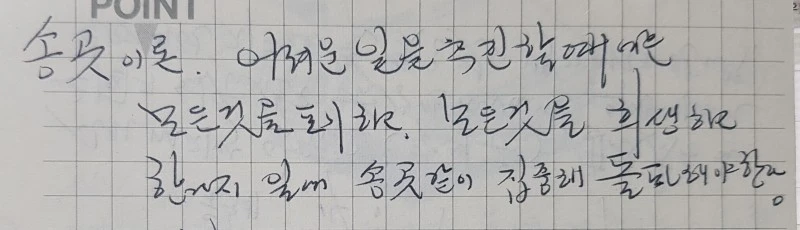 POINT
송곳이론. 어려운 일을 추진할때에는
모든것을 포기하고, 모든것을 희생하고
한가지 일에 송곳같이 집중해 돌파해야한다